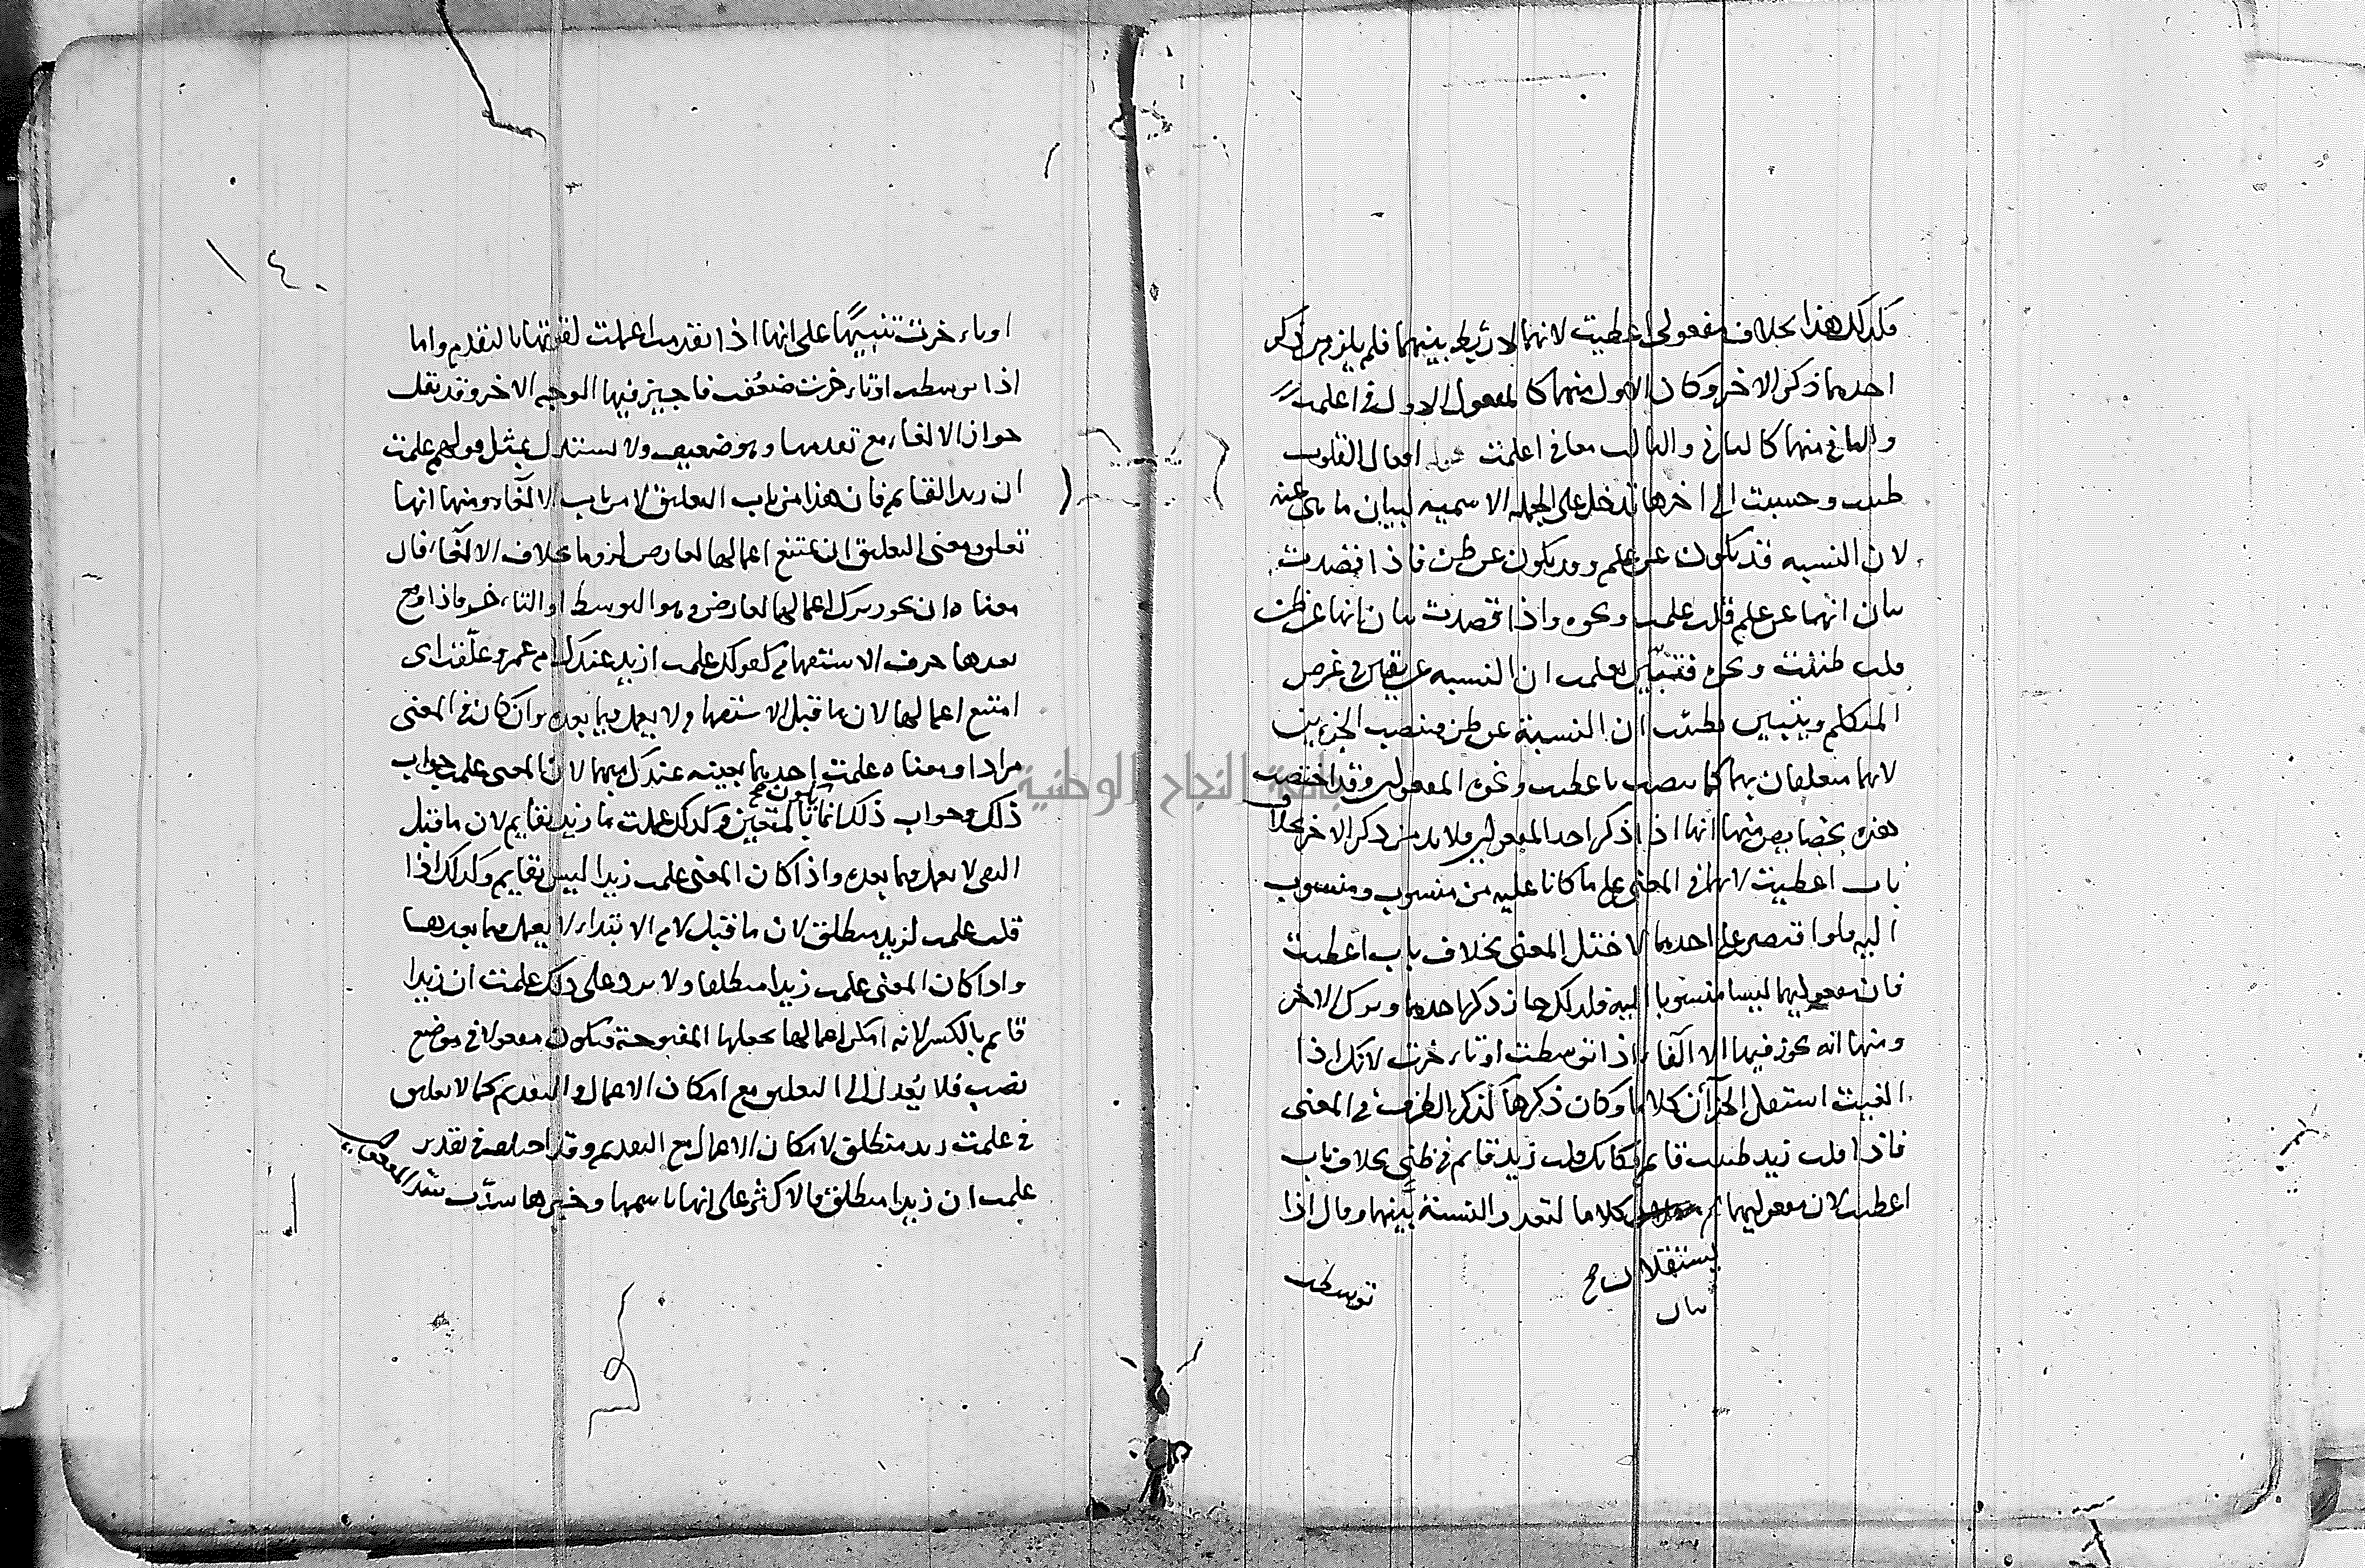 فكذلك هذا بخلاف مفعولي اعطيت لانهما لا ربط بينهما فلم يلزم من ذكر
احدهما ذكر الاخر وكان الاول منهما كالمفعول الاول في اعلمت
والثاني منهما كالثاني والثالث معا في اعلمت قوله افعال القلوب
ظننت وحسبت الى اخرها تدخل على الجملة الاسميه لبيان ما هي عنه
لان النسبه قد تكون عن علم وقد يكون عن ظن فاذا قصدت
بيان انهما عن علم قلت علمت ونحوه واذا قصدت بيان انها عن ظن
قلت ظننت ونحوه فتبين بعلمت ان النسبه عن يقين في غرض
المتكلم ويتبين بظننت ان النسبة عن ظن فتنصب الجزءين
لانهما متعلقان بهما كما تنصب باعطيت ونحوه المفعولين وقد اختصت
هذه بخصايص منها انها اذا ذكر احد المفعولين فلا بد من ذكر الاخر بخلاف
باب اعطيت لانهما في المعنى على ما كانا عليه من منسوب ومنسوب
اليه فلو اقتصر على احدهما لاختل المعنى بخلاف باب اعطيت
فان مفعوليهما ليسا منسوبا اليه فلذلك جاز ذكر احدهما وترك الاخر
ومنها انه يجوز فيها الالغاء اذا توسطت او تاءخرت لانك اذا
الغيت استقل الجزآن كلاما وكان ذكرها كذكر الظرف في المعنى
فاذا قلت زيد ظننت قايم فكانك قلت زيد قايم في ظني بخلاف باب
اعطيت لان مفعوليهما لا كلاما لتعذر النسبة بينهما وقال اذا
يستقلان صح
توسطت
اوتاءخرت تنبيها على انها اذا تقدمت اعملت لقوتها بالتقدم واما
اذا توسطت اوتاءخرت ضعفت فاجيز فيها الوجه الاخر وقد نقل
جواز الالغاء مع تقدمها وهو ضعيف ولا يستدل بمثل قولهم علمت
ان زيدا لقايم فان هذا من باب التعليق لا من باب الالغاء ومنها انها
تعلق ومعنى التعليق ان يمتنع اعمالها لعارض لزوما بخلاف الالغاء فان
معناه ان يجوز ترك اعمالها لعارض وهو التوسط او التاءخر فاذا وقع
بعدها حرف الاستفهام كقولك علمت ازيد عندك ام عمرو علقت اي
امتنع اعمالها لان ما قبل الاستفهام لا يعمل فيما بعده وان كان في المعنى
مرادا ومعناه علمت احدهما بعينه عندك منهما لان المعنى علمت جواب
ذلك وجواب ذلك انما يكون صح بالتعيين وكذلك علمت ما زيد بقايم لان ما قبل
النفي لا يعمل فيما بعده واذا كان المعنى علمت زيدا ليس بقايم وكذلك اذا
قلت علمت لزيد منطلق لان ما قبل لام الابتداء لا يعمل فيما بعدها
واذا كان المعنى علمت زيدا منطلقا ولا يرد على ذلك علمت ان زيدا
قايم بالكسر لانه امكن اعمالها بجعلها المفتوحة فتكون مفعولا في موضع
نصب فلا يعدل الى التعليق مع امكان الاعمال والتقديم كما لا تعلق
في علمت زيد منطلق لامكان الاعمال مع التقديم وقد اختلف في تقدير
علمت ان زيدا منطلق فالاكثر على انها باسمها وخبرها سدت مسد المفعولين
١٤٠
جامعة النجاح الوطنية